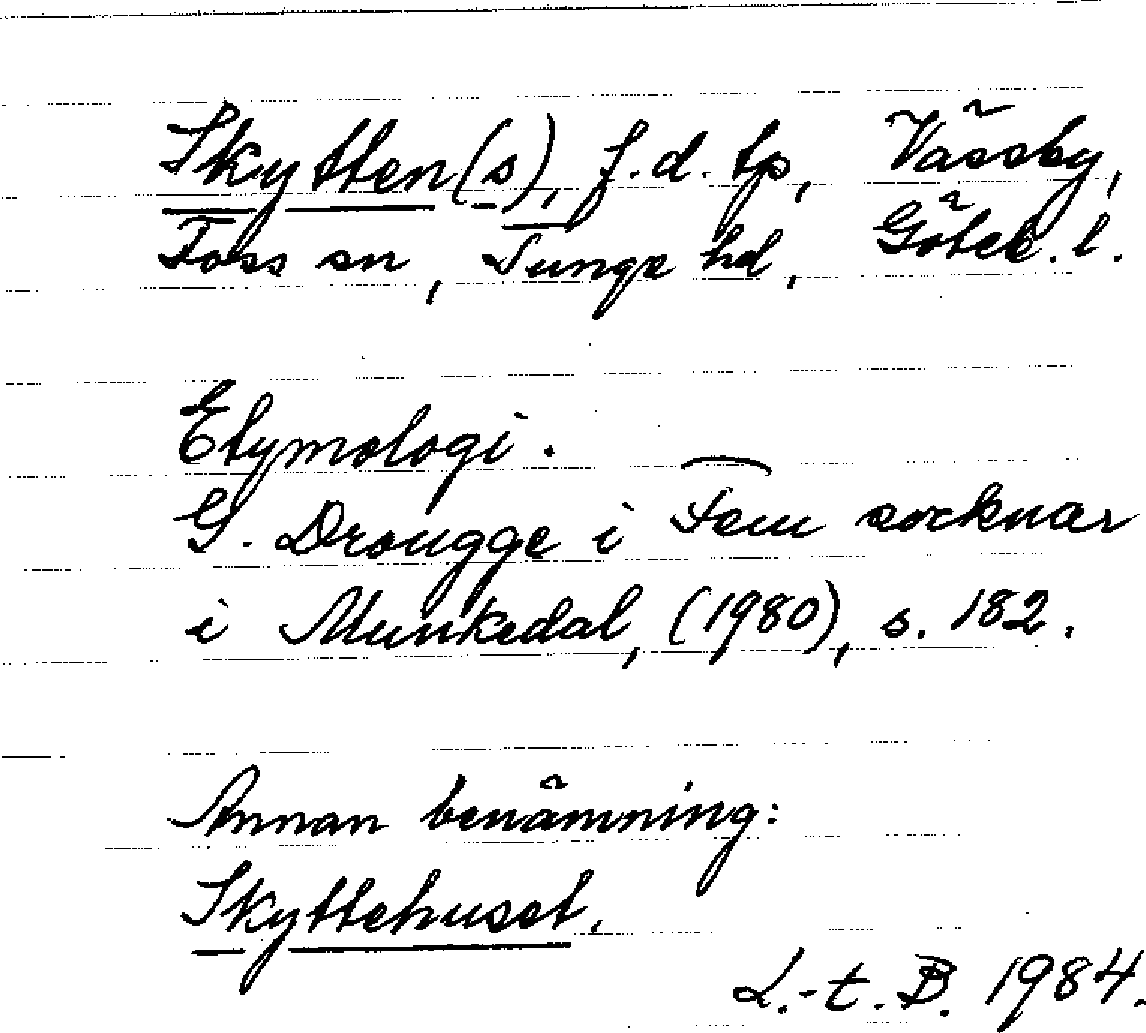 Skytten(s), f.d. tp, Vässby,
Foss sn, Tunge hd, Göteb. l.
Etymologi.
G. Drougge i Fem socknar
i Munkedal, (1980), s. 182.
Annan benämning:
Skyttehuset.
L.-t. B. 1984.